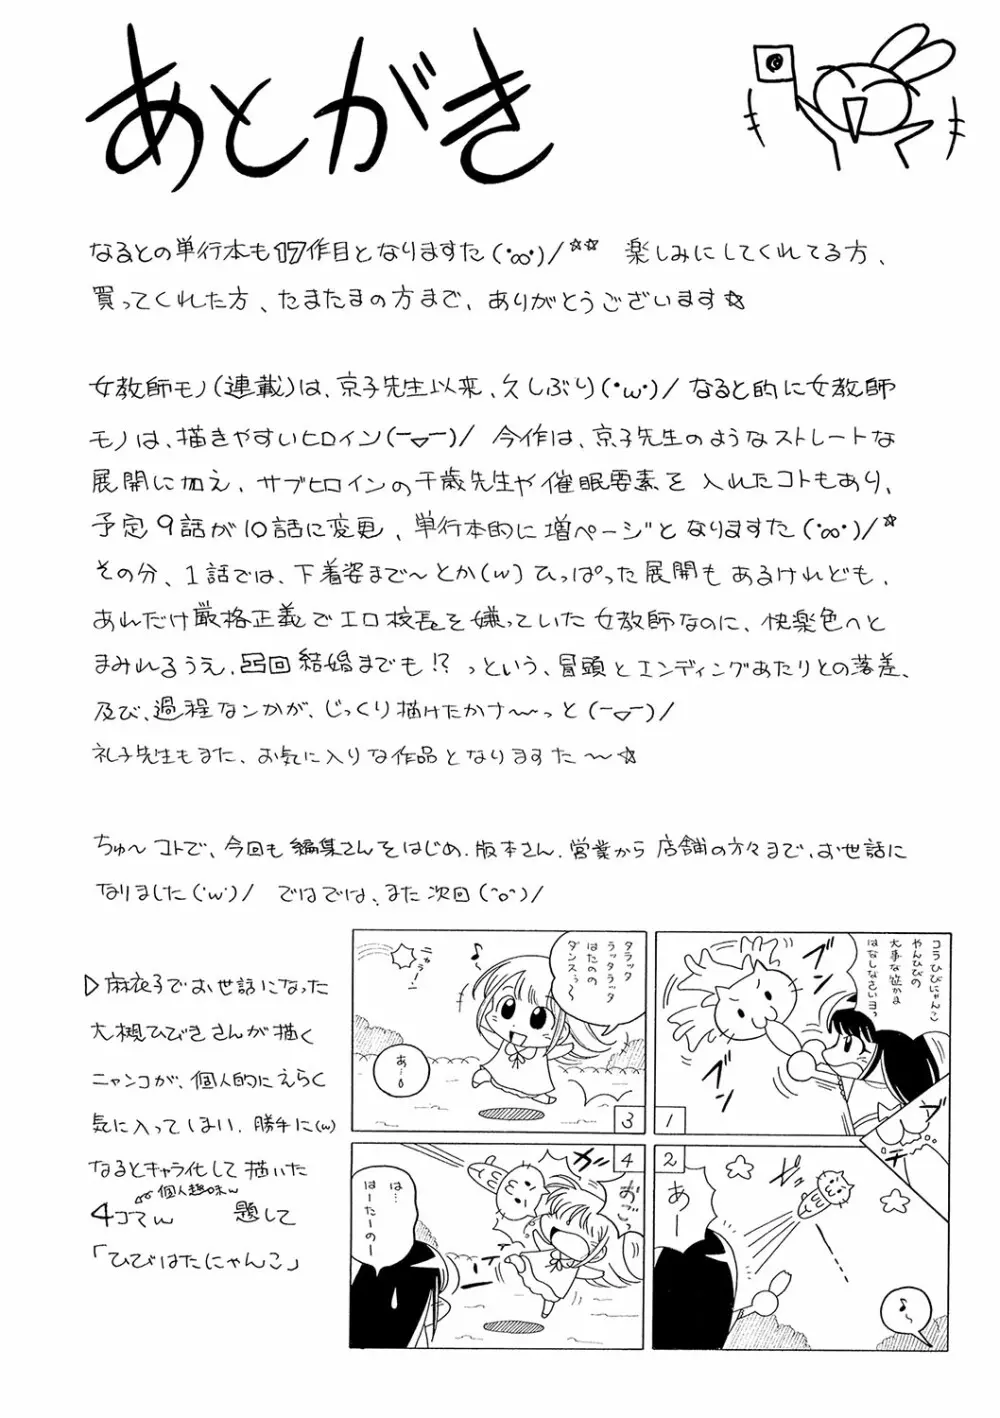 あとがき
なるとの単行本も17作目となりますた(・ω・)/☆☆ 楽しみにしてくれてる方、
買ってくれた方、たまたまの方まで、ありがとうございます☆
女教師モノ(連載)は、京子先生以来、久しぶり(・ω・)/ なると的に女教師
モノは、描きやすいヒロイン(ー▽ー)/ 今作は、京子先生のようなストレートな
展開に加え、サブヒロインの千歳先生や催眠要素を入れたコトもあり、
予定9話が10話に変更、単行本的に増ページとなりますた(・ω・)/☆
その分、1話では、下着姿まで〜とか(w) ひっぱった展開もあるけれども、
あれだけ厳格正義でエロ校長を嫌っていた女教師なのに、快楽色へと
まみれるうえ、今回結婚までも!? っという、冒頭とエンディングあたりとの落差、
及び、過程なンかが、じっくり描けたかナ〜〜っと(ー▽ー)/
礼子先生もまた、お気に入りな作品となりますた〜☆
ちゅ〜コトで、今回も編集さんをはじめ、版本さん、営業から店舗の方々まで、お世話に
なりました(・ω・)/ ではでは、また次回(^o^)/
▷麻衣子でお世話になった
大槻ひびきさんが描く
ニャンコが、個人的にえらく
気に入ってしまい、勝手に(w)
なるとキャラ化して描いた
個人趣味w
4コマん 題して
「ひびはたにゃんこ」
コラひびにゃんこ
やんひびの
大事な
はなしなさいヨっ
ブンブン
1
あー
♪
2
タラッタ
ラッタラッタ
はたのの
ダンスぅ〜
♪
ニャラーン
あ…
3
ガッ
おごっ
は…
はーたーのー
4